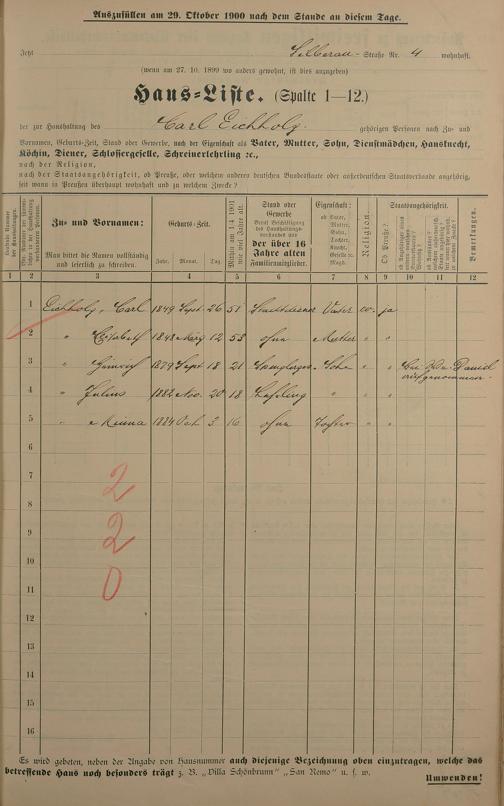 Auszufüllen am 29. Oktober 1900 nach dem Stande an diesem Tage.
Jetzt Straße Nr. 4 wohnhaft.
(wenn am 27. 10. 1899 wo anders gewohnt, ist dies anzugeben)
Haus-Liste. (Spalte 1—12.)
der zur Haushaltung des Carl Eichholz gehörigen Personen nach Zu- und
Vornamen, Geburts-Zeit, Stand oder Gewerbe, nach der Eigenschaft als Vater, Mutter, Sohn, Dienstmädchen, Hausknecht,
Köchin, Diener, Schlossergeselle, Schreinerlehrling ꝛc.,
nach der Religion,
nach der Staatsangehörigkeit, ob Preuße, oder welchem anderen deutschen Bundesstaate oder außerdeutschen Staatsverbande angehörig,
seit wann in Preußen überhaupt wohnhaft und zu welchem Zwecke?
Zu- und Vornamen:
Man bittet die Namen vollständig
und leserlich zu schreiben.
Geburts-Zeit.
Jahr. Monat. Tag.
Mithin am 1/4 1901
wie viel Jahre alt.
Stand oder
Gewerbe
der über 16
Jahre alten
Familienmitglieder.
Eigenschaft:
ob Vater,
Mutter,
Sohn,
Tochter,
Knecht,
Geselle ꝛc.
Magd.
Religion.
Staatsangehörigkeit.
Ob Preuße?
Bemerkungen.
1 2 3 4 5 6 7 8 9 10 11 12
1 Eichholz, Carl 1849 Sept. 26 51 Stadtdiener Vater ev. ja
2 " Elisabeth 1848 März 12 53 ohne Mutter " "
3 " Heinrich 1879 Sept 18 21 Sohn " "
4 " Julius 1882 Nov. 20 18 Lehrling " " "
5 " Minna 1884 Oct. 3 16 ohne Tochter " "
6
7
8
9
10
11
12
13
14
15
16
2
2
0
Es wird gebeten, neben der Angabe von Hausnummer auch diejenige Bezeichnung oben einzutragen, welche das
betreffende Haus noch besonders trägt z. B. „Villa Schönbrunn" „San Remo" u. s. w.
Umwenden!